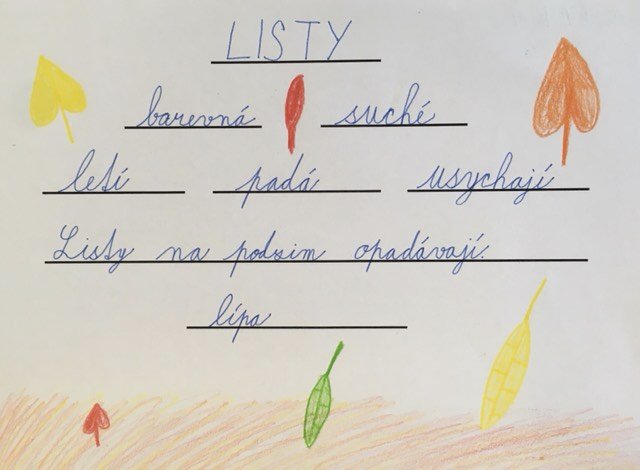 LISTY
barevná suché
letí padá usychají
Listy na podzim opadávají.
lípa